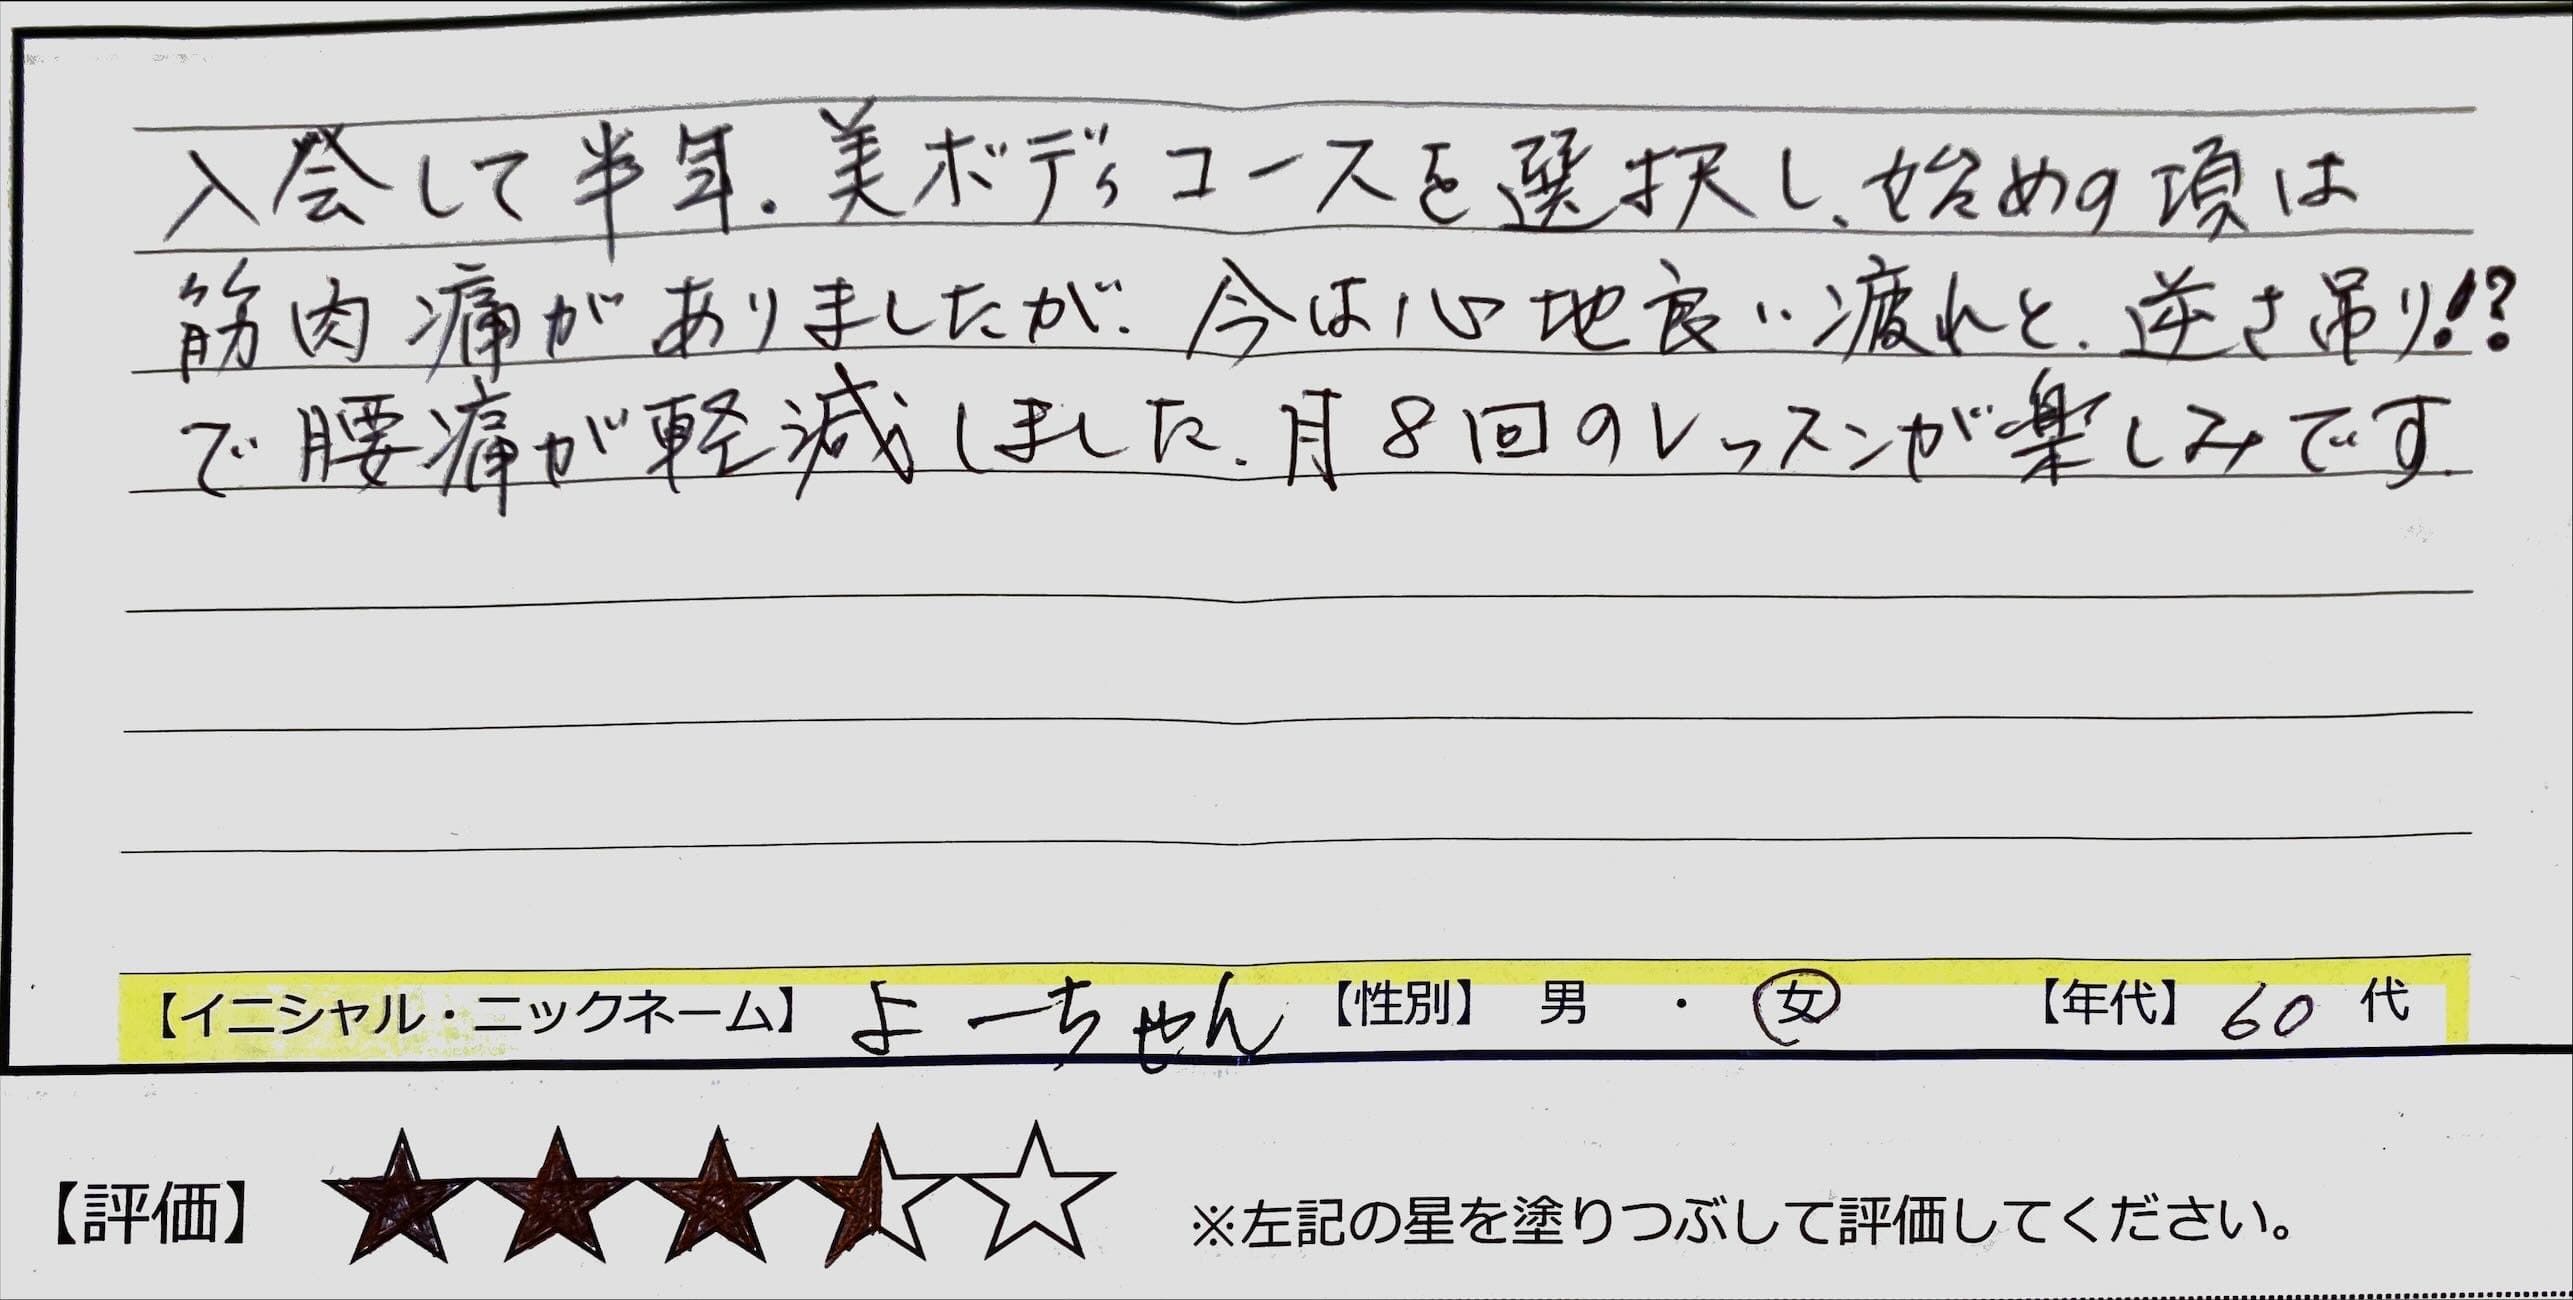 入会して半年.美ボディコースを選択し、始めの項は
筋肉痛がありましたが、今は心地良い疲れと、逆さ吊り!?
で腰痛が軽減しました、月8回のレッスンが楽しみです.
【イニシャル・ニックネーム】 よーちゃん 【性別】 男 ・ 女 【年代】 60 代
【評価】 ※左記の星を塗りつぶして評価してください。